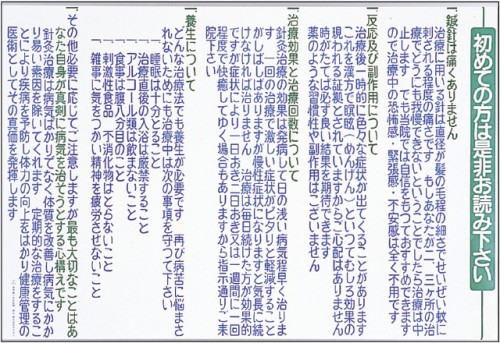 初めての方は是非お読み下さい
『鍼針は痛くありません
治療に用いる針は直径が髪の毛程の細さでせいぜい蚊に
刺される程度の痛さです もしあなたが二、三ヶ所の治
療でどうにも我慢できないということでしたら治療は中
止します でも当院では自信をもっておすすめできます
ので治療中の恐怖感・緊張感・不安感は全く不用です
『反応及び副作用について
治療後一時的に様々な症状が出てくることがあります
これを漢方で瞑眩(めんげん)といってむしろ効果の
現われる証拠とされていますからご心配はありません
時がたてば必ず良い結果を期待できます
薬のような習慣性や副作用はございません
『治療効果と治療回数について
針灸治療の効果は発病して日の浅い病気程早く治りま
す 一回の治療で激しい症状がピタリと軽減すること
がしばしばありますが慢性症状になりますと気長に続
けなければ治りません 治療は毎日続けた方が効果的
ですが症状により一日おき二日おき又は一週間に一回
程度で快癒して行く場合もありますから指示通りご来
院下さい
『養生について
どんな治療法でも養生が必要です 再び病苦に悩まさ
れないためにも治療中は次の事項を守って下さい
・睡眠は十分にとること
・治療直後の入浴は厳禁すること
・アルコール類は飲まないこと
・食事は腹八分目のこと
・刺激性食品 不消化物はとらないこと
・雑事に気をつかい精神を疲労させないこと
その他必要に応じてご注意しますが最も大切なことはあ
なた自身が真剣に病気を治そうとする心構えです
針灸治療は病気ばかりでなく体質を改善し病気にかか
り易い素因を除いてくれます 定期的な治療をするこ
とにより疾病を予防し体力の向上をはかり健康管理の
医術としてその真価を発揮します